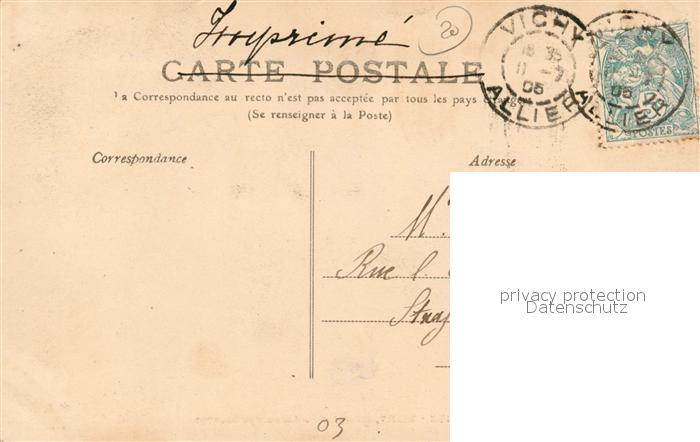 Imprimé
20
CARTE POSTALE
La Correspondance au recto n'est pas acceptée par tous les pays
(Se renseigner à la Poste)
VICHY
05
ALLIER
VICHY
05
ALLIER
POSTES
Correspondance
Adresse
M.
Rue
privacy protection
Datenschutz
03